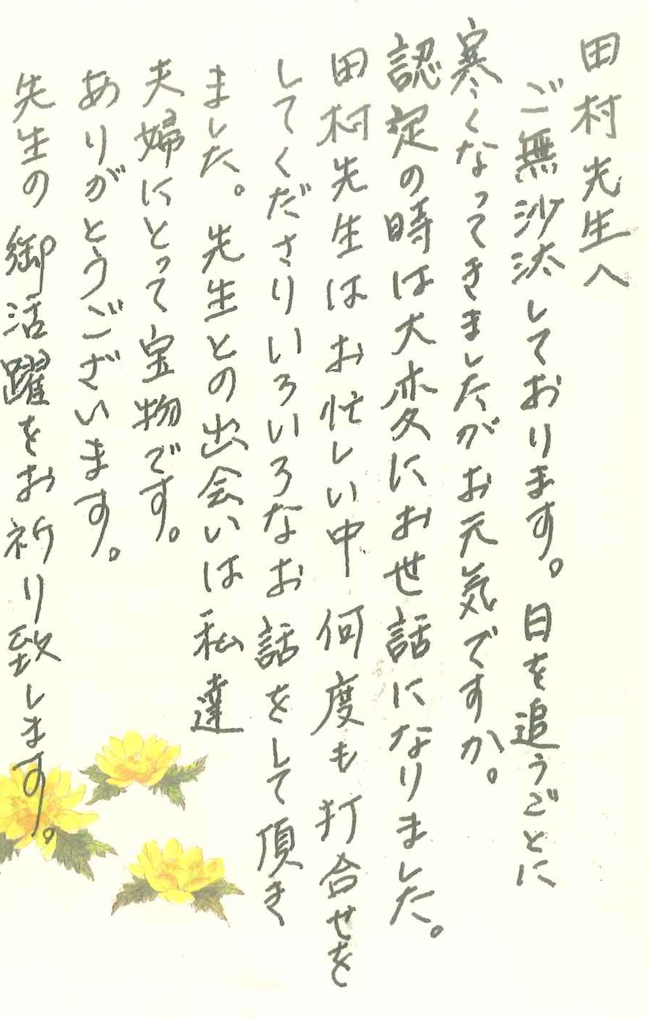 田村先生へ
ご無沙汰しております。日を追うごとに
寒くなってきましたがお元気ですか。
認定の時は大変にお世話になりました。
田村先生はお忙しい中何度も打合せを
してくださりいろいろなお話をして頂き
ました。先生との出会いは私達
夫婦にとって宝物です。
ありがとうございます。
先生の御活躍をお祈り致します。